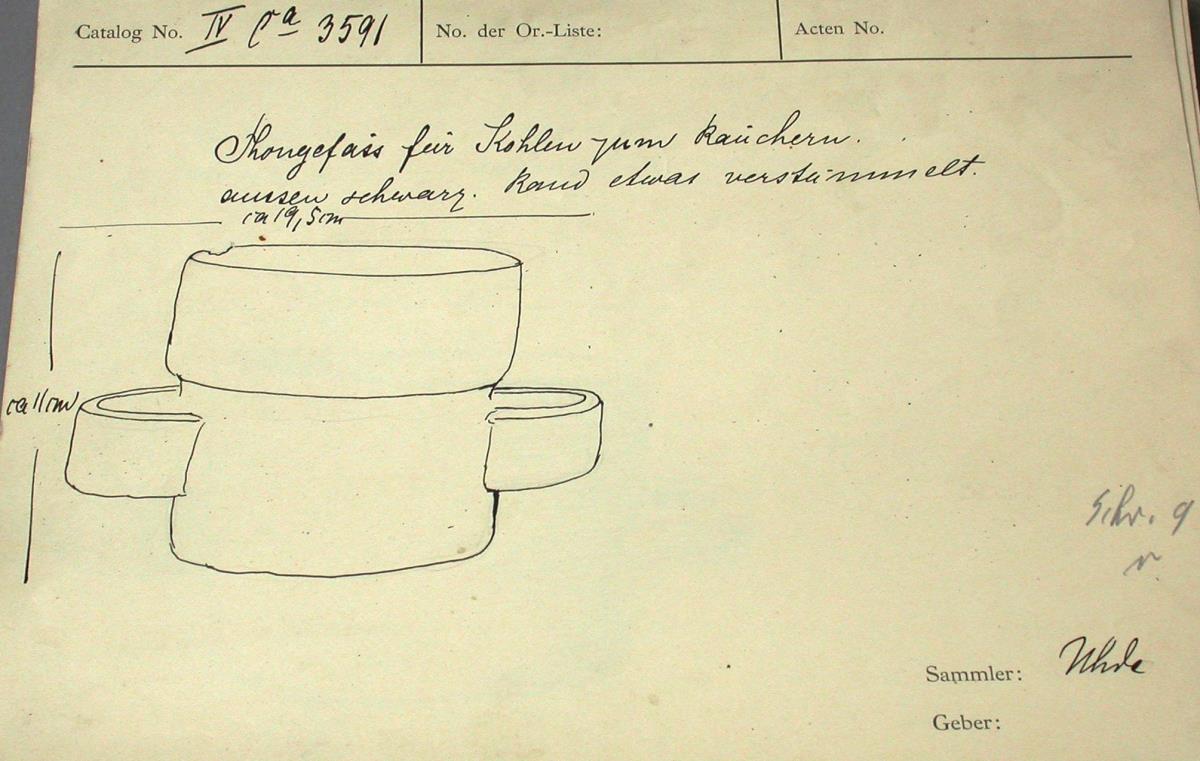 Catalog No. IV Ca 3591 No. der Or.-Liste: Acten No.
Thongefäss für Kohlen zum Räuchern.
aussen schwarz. Rand etwas verstümmelt.
ca 19,5 cm
ca 11 cm
Schr. 9
Sammler: Uhde
Geber: